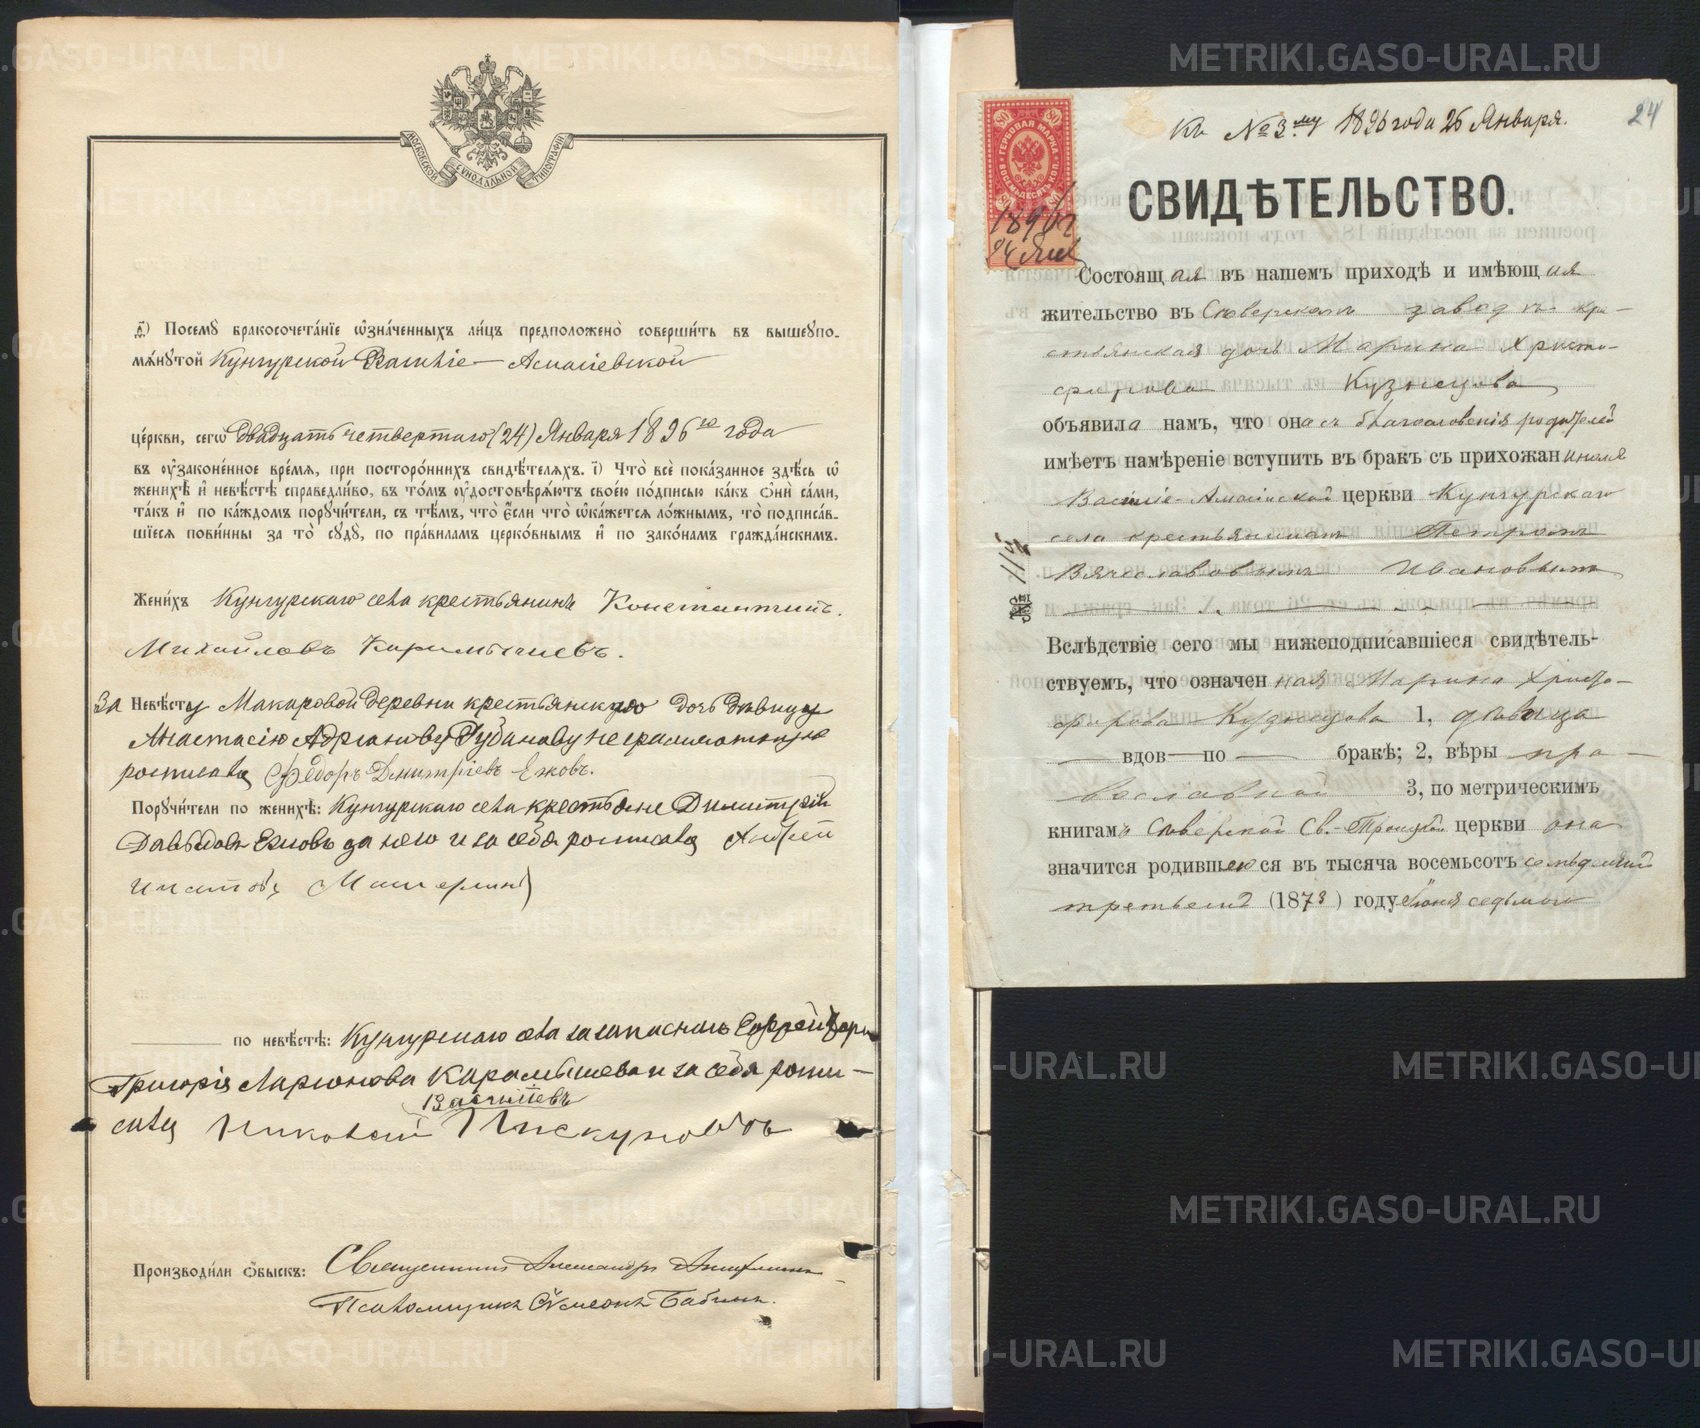 МОСКОВСКОЙ СУНОДАЛЬНОЙ ТИПОГРАФІИ
ѳ҃) Посемꙋ̀ бракосочета́нїе ѡ҆зна́ченныхъ ли́цъ предположено̀ соверши́ть въ вышеꙋпо-
мѧ́нꙋтой Кунгурской Василіе-Амасіевской
це́ркви, сегѡ̀ двадцать четвертаго (24) Января 1896го года
въ ᲂу҆зако́ненное вре́мѧ, при посторо́ннихъ свидѣ́телѧхъ. і҃) Что̀ всѐ пока́занное здѣ́сь ѡ҆
женихѣ̀ и҆ невѣ́стѣ справедли́во, въ то́мъ ᲂу҆достовѣрѧ́ютъ свое́ю по́дписью ка́къ ѻ҆нѝ са́ми,
та́къ и҆ по ка́ждомъ порꙋчи́тели, съ тѣ́мъ, что̀ є҆́сли что̀ ѡ҆ка́жетсѧ ло́жнымъ, то̀ подписа́в-
шїесѧ пови́нны за то̀ сꙋдꙋ̀, по пра́виламъ церко́внымъ и҆ по зако́намъ гражда́нскимъ.
Жени́хъ Кунгурскаго села крестьянинъ Константинъ
Михайловъ Карамышевъ.
За Невѣ́стꙋ Макаровой деревни крестьянскую дочь дѣвицу
Анастасію Адріанову Рубанову неграмотную
росписался Ѳедоръ Дмитріевъ Ежовъ.
Порꙋчи́тели по женихѣ̀: Кунгурскаго села крестьяне Димитрій
Давыдовъ Ежовъ за него и за себя росписался Андрей
Игнатовъ
по невѣ́стѣ: Кунгурскаго села запаснаго
Григорія Ларіонова Карамышева и за себя роспи-
сался Васильевъ Пискуновъ
Производи́ли ѻ҆́быскъ: Священникъ Александръ
Псаломщикъ Сѵмеонъ Бабинъ.
24
Къ №3му 1896 года 26 Января.
ГЕРБОВАЯ МАРКА
ВОСЕМЬДЕСЯТЪ КОП.
80
1896 г
24 Янв
СВИДѢТЕЛЬСТВО.
Состоящая въ нашемъ приходѣ и имѣющая
жительство въ Сѣверскомъ заводѣ кре-
стьянская дочь Марина Христо-
форова Кузнецова
объявила намъ, что она съ благословенія родителей
имѣетъ намѣреніе вступить въ бракъ съ прихожаниномъ
Василіе-Амасійской церкви Кунгурскаго
села крестьяниномъ Петромъ
Вячеславовымъ Ивановымъ
№ 11й
Вслѣдствіе сего мы нижеподписавшіеся свидѣтель-
ствуемъ, что означенная Марина Христо-
форова Кузнецова 1, дѣвица
вдов— по — бракѣ; 2, вѣры пра-
вославной 3, по метрическимъ
книгамъ Сѣверской Св.-Троицкой церкви она
значится родившеюся въ тысяча восемьсотъ семьдесятъ
третьемъ (1873) году Іюня седьмаго
METRIKI.GASO-URAL.RU